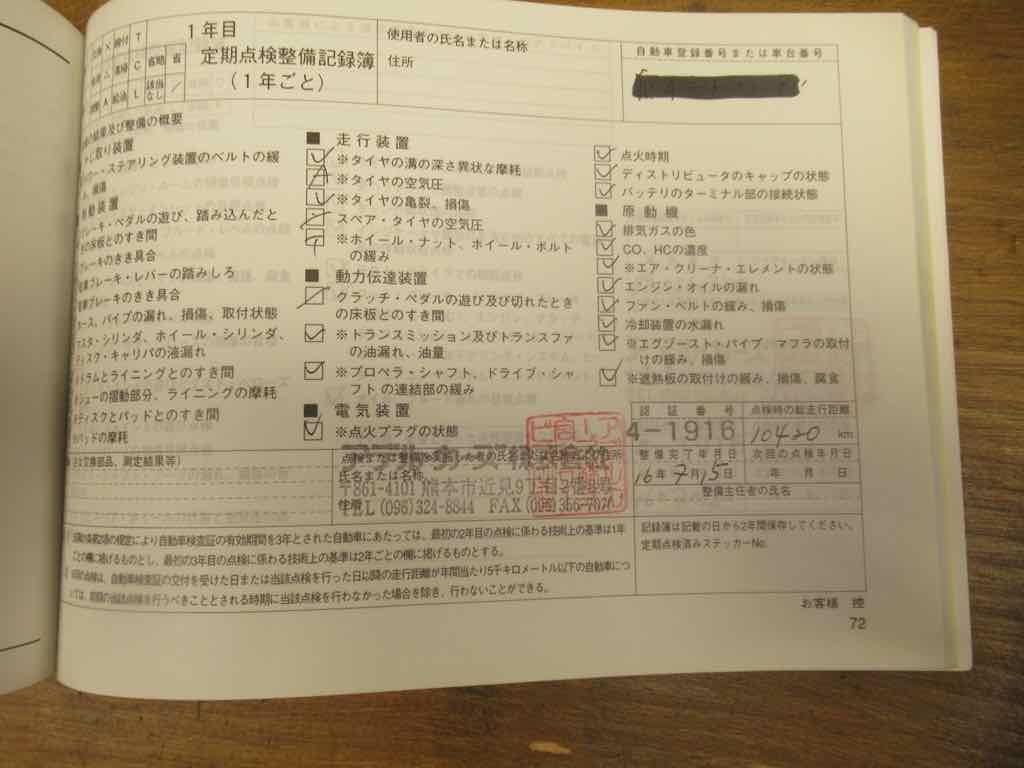 1年目
定期点検整備記録簿
(1年ごと)
使用者の氏名または名称
住所
自動車登録番号または車台番号
T
C
省略
省
A
給油
L
該当なし
／
の結果及び整備の概要
じ取り装置
ステアリング装置のベルトの緩
損傷
動装置
ブレーキ・ペダルの遊び、踏み込んだと
の床板とのすき間
ブレーキのきき具合
ブレーキ・レバーの踏みしろ
ブレーキのきき具合
ホース、パイプの漏れ、損傷、取付状態
マスタ・シリンダ、ホイール・シリンダ、
ディスク・キャリパの液漏れ
ドラムとライニングとのすき間
シューの摺動部分、ライニングの摩耗
ディスクとパッドとのすき間
パッドの摩耗
■ 走行装置
※タイヤの溝の深さ異状な摩耗
※タイヤの空気圧
※タイヤの亀裂、損傷
スペア・タイヤの空気圧
※ホイール・ナット、ホイール・ボルト
の緩み
■ 動力伝達装置
クラッチ・ペダルの遊び及び切れたとき
の床板とのすき間
※トランスミッション及びトランスファ
の油漏れ、油量
※プロペラ・シャフト、ドライブ・シャ
フトの連結部の緩み
■ 電気装置
※点火プラグの状態
点火時期
ディストリビュータのキャップの状態
バッテリのターミナル部の接続状態
■ 原動機
排気ガスの色
CO、HCの濃度
※エア・クリーナ・エレメントの状態
エンジン・オイルの漏れ
ファン・ベルトの緩み、損傷
冷却装置の水漏れ
※エグゾースト・パイプ、マフラの取付
けの緩み、損傷
※遮熱板の取付けの緩み、損傷、腐食
交換部品、測定結果等)
氏名または名称
住所
〒861-4101 熊本市近見9丁目
TEL (096) 324-8844 FAX
認証番号
4-1916
点検時の総走行距離
10420 km
整備完了年月日
16年7月15日
次回の点検年月日
年 月 日
整備主任者の氏名
記録簿は記載の日から2年間保存してください。
定期点検済みステッカーNo.
の規定により自動車検査証の有効期間を3年とされた自動車にあたっては、最初の2年目の点検に係わる技術上の基準は1年
ごとの欄に掲げるものとし、最初の3年目の点検に係わる技術上の基準は2年ごとの欄に掲げるものとする。
の点検は、自動車検査証の交付を受けた日または当該点検を行った日以降の走行距離が年間当たり5千キロメートル以下の自動車につ
いては、前回の当該点検を行うべきこととされる時期に当該点検を行わなかった場合を除き、行わないことができる。
お客様 控
72